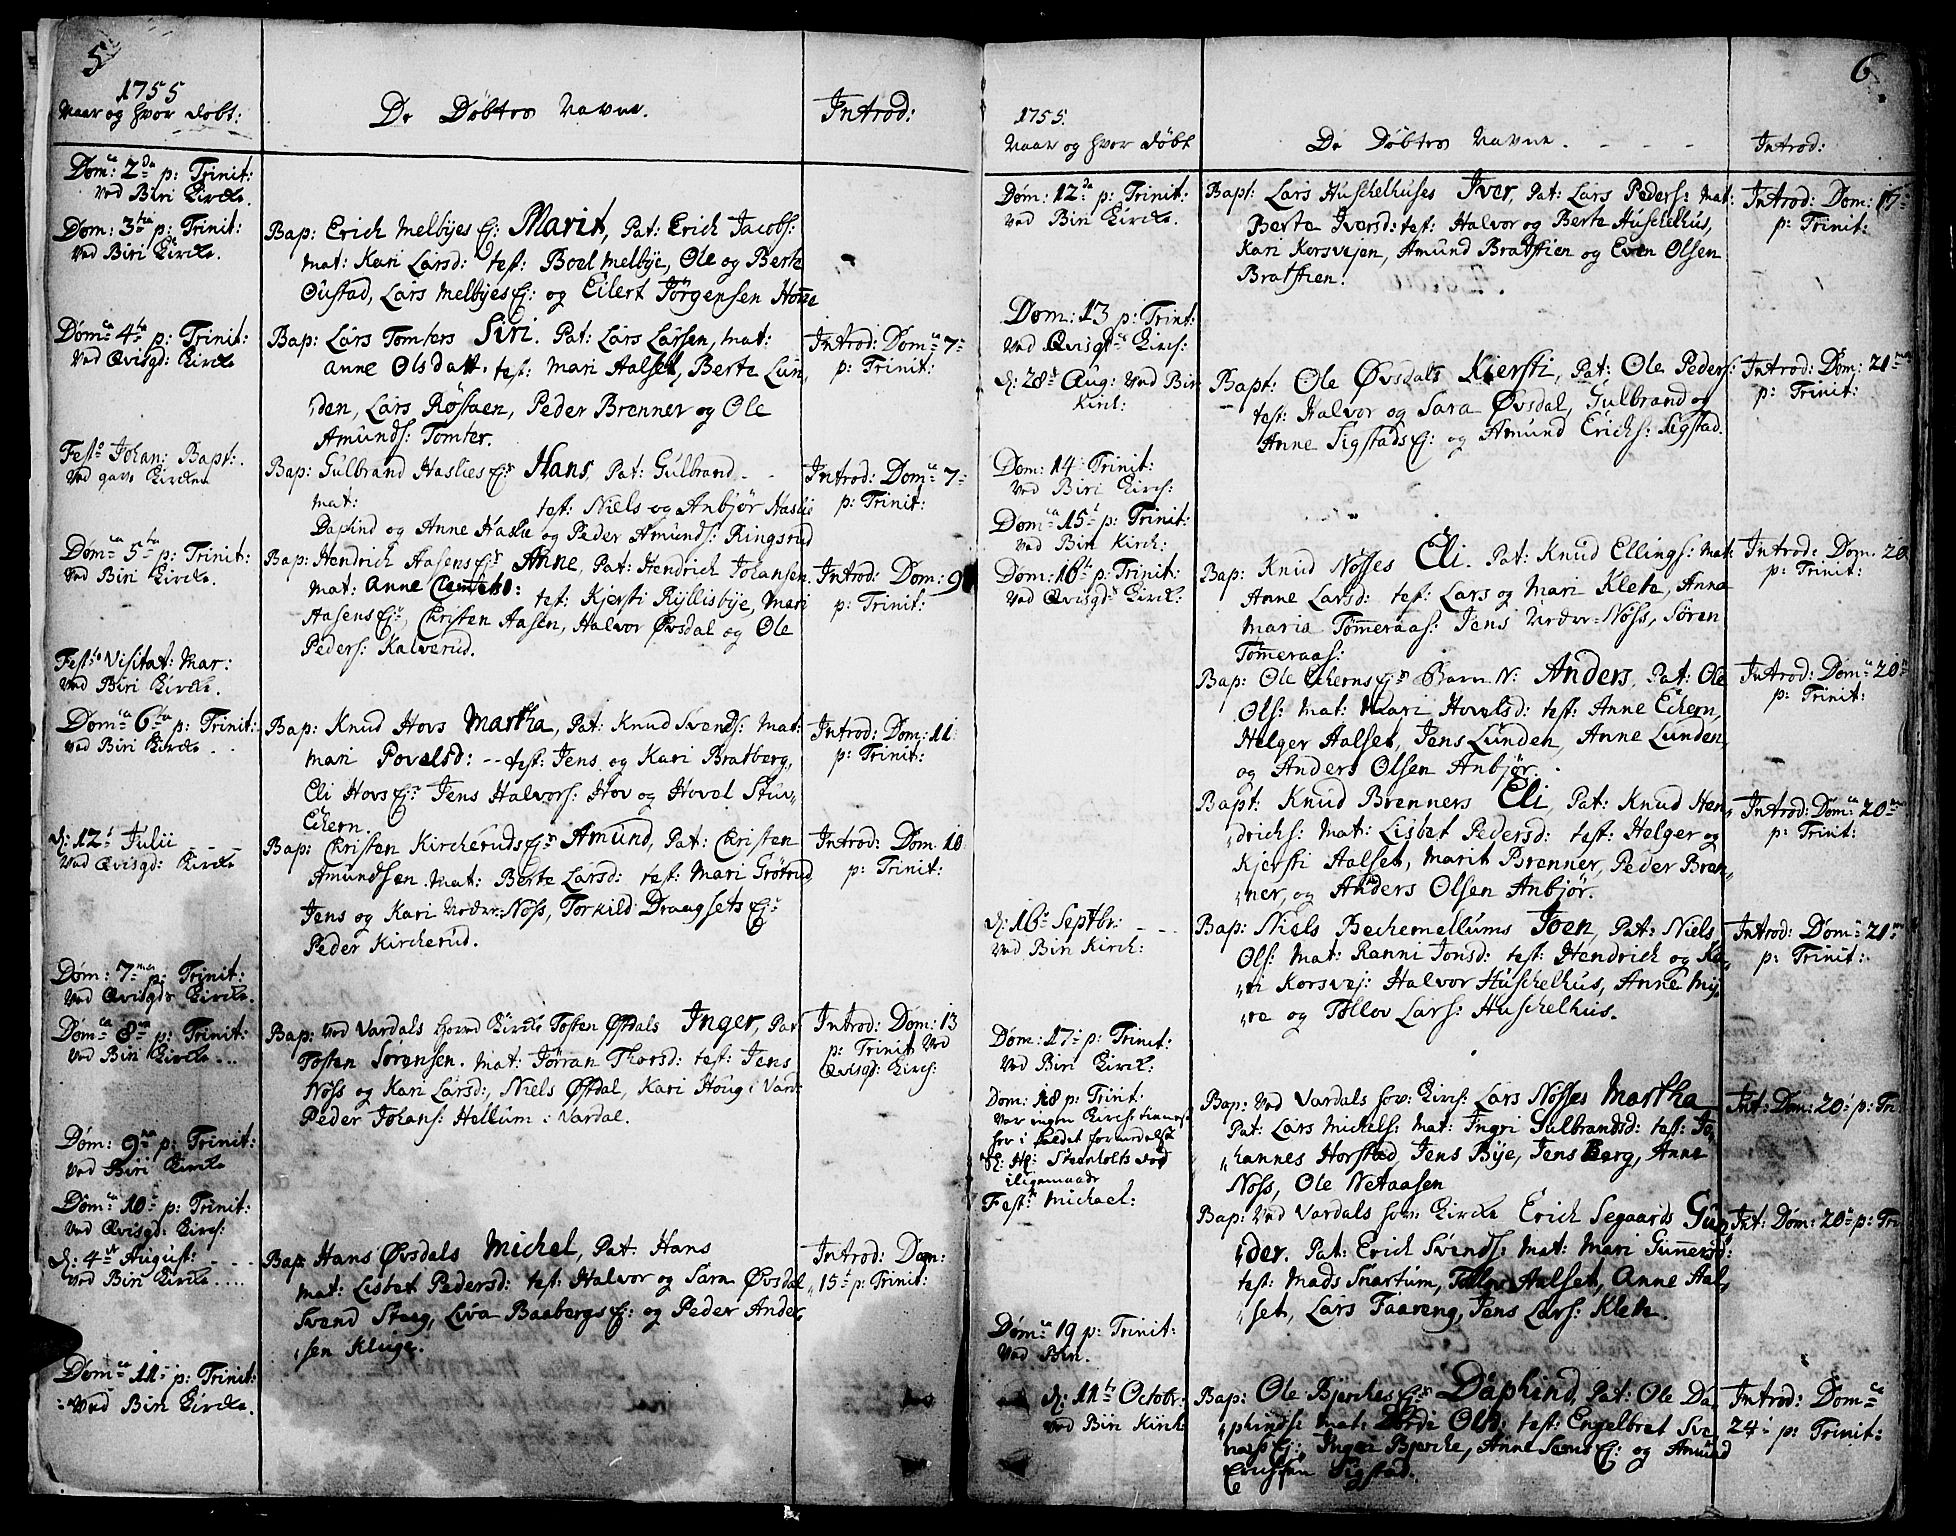 5
1755
Naar og hvor døbt:
De Døbtes Navne.
Introd:
Dom:ca 2da p: Trinit:
Ved Biri Kircke.
Dom:ca 3tia p: Trinit:
Ved Biri Kircke.
Bap: Erich Melbyes Ej: Marit, Pat: Erich Jacobs:
mat: Kari Larsd: test: Boel Melbye, Ole og Berte
Oustad, Lars Melbyes Ej: og Eilert Jörgensen Honne
Dom:ca 4ta p: Trinit:
Ved Qvisgd: Kircke
Bap: Lars Tomters Siri. Pat: Lars Larsen, mat:
Anne Olsdatt. test: Mari Aalset, Berte Lun,
den, Lars Røstaen, Peder Brenner og Ole
Amunds: Tomter.
Introd: Dom:ca 7
p: Trinit:
Festo Johan: Bapt:
Ved Kircken
Bap: Gulbrand Haslies Ejr Hans, Pat: Gulbrand
mat: test: Niels og Anbjør Haslie
Daphind og Anne Haslie og Peder Amunds: Ringsrud
Introd: Dom:ca 7
p: Trinit:
Dom:ca 5ta p: Trinit:
Ved Biri Kircke.
Bap: Hendrich Aasens Ejr Anne, Pat: Hendrich Johansen
mat: Anne test: Kjersti Ryllisbye, Mari
Aasens Ejr, Christen Aasen, Halvor Øvsdal og Ole
Peders: Kalverud.
Introd: Dom: 9
p: Trinit:
Festo Visitat: Mar:
Ved Biri Kircke.
Dom:ca 6ta p: Trinit:
Ved Biri Kircke
Bap: Knud Hovs Martha, Pat: Knud Svends: Mat:
Mari Povelsd: test: Jens og Kari Bratberg,
Eli Hovs Ejr Jens Halvors: Hov og Hovel Stuv
Echern.
Introd: Dom: 11
p: Trinit:
d: 12t Julii
Ved Qvisgd: Kircke
Bap: Christen Kircheruds Ejr Amund, Pat: Christen
Amundsen. Mat: Berte Larsd: test: Mari Grötrud,
Jens og Kari Neder-Nöss, Torkild Draagsets Ejr
Peder Kircherud.
Introd: Dom: 10
p: Trinit:
Dom: 7ma p: Trinit:
Ved Qvisgds Kircke.
Dom:ca 8va p: Trinit:
Ved Biri Kircke
Bap: Ved Vardals Hoved Kircke Tosten Øfsdals Inger, Pat
Tosten Sörensen. Mat: Jörran Thorsd: test: Jens
Nöss og Kari Larsd:, Niels Øfsdal, Kari Houg i Vard:
Peder Johans: Hellum i Vardal.
Introd: Dom: 13
p: Trinit Ved
Qvisgd: Kirch:
Dom: 9na p: Trinit:
Ved Biri Kircke
Dom:ca 10 p: Trinit:
Ved Qvisgd: Kirch:
d: 4de August:
Ved Biri Kircke
Bap: Hans Øvsdals Michel, Pat: Hans
Mat: Lisbet Pedersd: test: Halvor og Sara Øvsdal
Svend Staeg, Liva Baabergs Ej: og Peder Ander,
sen Kluge.
Introd: Dom:
15 p: Trinit:
Dom:ca 11 p: Trinit:
Ved Biri Kircke.
6
1755.
Naar og hvor døbt
De Døbtes Navne.
Introd:
Dom: 12da p: Trinit:
Ved Biri Kircke.
Bapt: Lars Huschelhuses Iver, Pat: Lars Peders: Mat:
Berte Iversd: test: Halvor og Berte Huschelhus,
Kari Korsvejen, Amund Bratstien og Even Olsen
Bratstien.
Introd: Dom: 15
p: Trinit:
Dom: 13 p: Trinit:
Ved Qvisgds Kirch:
d: 28t Aug: Ved Biri
Kirch:
Bapt: Ole Øvsdals Kjersti, Pat: Ole Peders:
test: Halvor og Sara Øvsdal, Gulbrand og
Anne Sigstads Ej: og Amund Erichs: Sigstad.
Introd: Dom: 21
p: Trinit:
Dom: 14 Trinit:
Ved Biri Kirch:
Dom:ca 15 p: Trinit:
Ved Biri Kirch:
Dom: 16 p: Trinit:
Ved Qvisgds Kirch:
Bap: Knud Nösses Eli. Pat: Knud Ellings: Mat:
Anne Larsd: test: Lars og Mari Klete, Anna
Maria Tömmeraas: Jens Neder-Nöss, Sören
Tömmeraas:
Introd: Dom: 20
p: Trinit:
Bap: Ole Echerns Ejr Barn N: Anders. Pat: Ole
Ols: Mat: Mari Hovelsd: test: Anne Echern,
Helger Aalset, Jens Lunden, Anne Lunden,
og Anders Olsen Anbjør.
Introd: Dom:ca 20
p: Trinit:
Bapt: Knud Brenners Eli, Pat: Knud Hen,
drichs: Mat: Lisbet Pedersd: test: Helger og
Kjersti Aalset, Marit Brenner, Peder Bren,
ner, og Anders Olsen Anbjør.
Introd: Dom:ca 20
p: Trinit:
d: 16 Septbr:
Ved Biri Kirch:
Bap: Niels Bechemellums Joen, Pat: Niels
Ols: Mat: Ranni Jonsd: test: Hendrich og Ka,
ri Korsvej: Halvor Huschelhus, Anne My,
re og Tollov Lars: Huschelhus.
Introd: Dom: 21
p: Trinit:
Dom: 17 p: Trinit:
Ved Biri Kirck:
Dom: 18 p: Trinit:
Var ingen Kirch: tieneste
her i Gieldet formedelst
Hr: Steenholts
Bap: Ved Vardals hov: Kirch: Lars Nösses Martha
Pat: Lars Michels: Mat: Ingri Gulbrandsd: test: Jo,
hannes Horstad, Jens Bye, Jens Berg, Anne
Nöss, Ole Netaasen
Int: Dom: 20 p: Tri
Festo Michael:
Bap: Ved Vardals hov: Kircke Erich Segaards Gun,
der. Pat: Erich Svends: Mat: Mari Gunnersd:
test: Mads Snartum, Tollov Aalset, Anne Aal,
set, Lars Faareng, Jens Lars: Klete.
Int: Dom: 20 p: Tri
Dom:ca 19 p: Trinit:
Ved Biri.
d: 11te Octobr:
Ved Biri Kirck
Bap: Ole Bjerches Ejr Daphind, Pat: Ole Da,
phinds: Mat: Olsd: test: Engelbret Sve,
næs Ej:, Inger Bjerche, Anne Ej: og Amund
Erichsen Sigstad.
Introd: Dom:ca
24 p: Trinit: